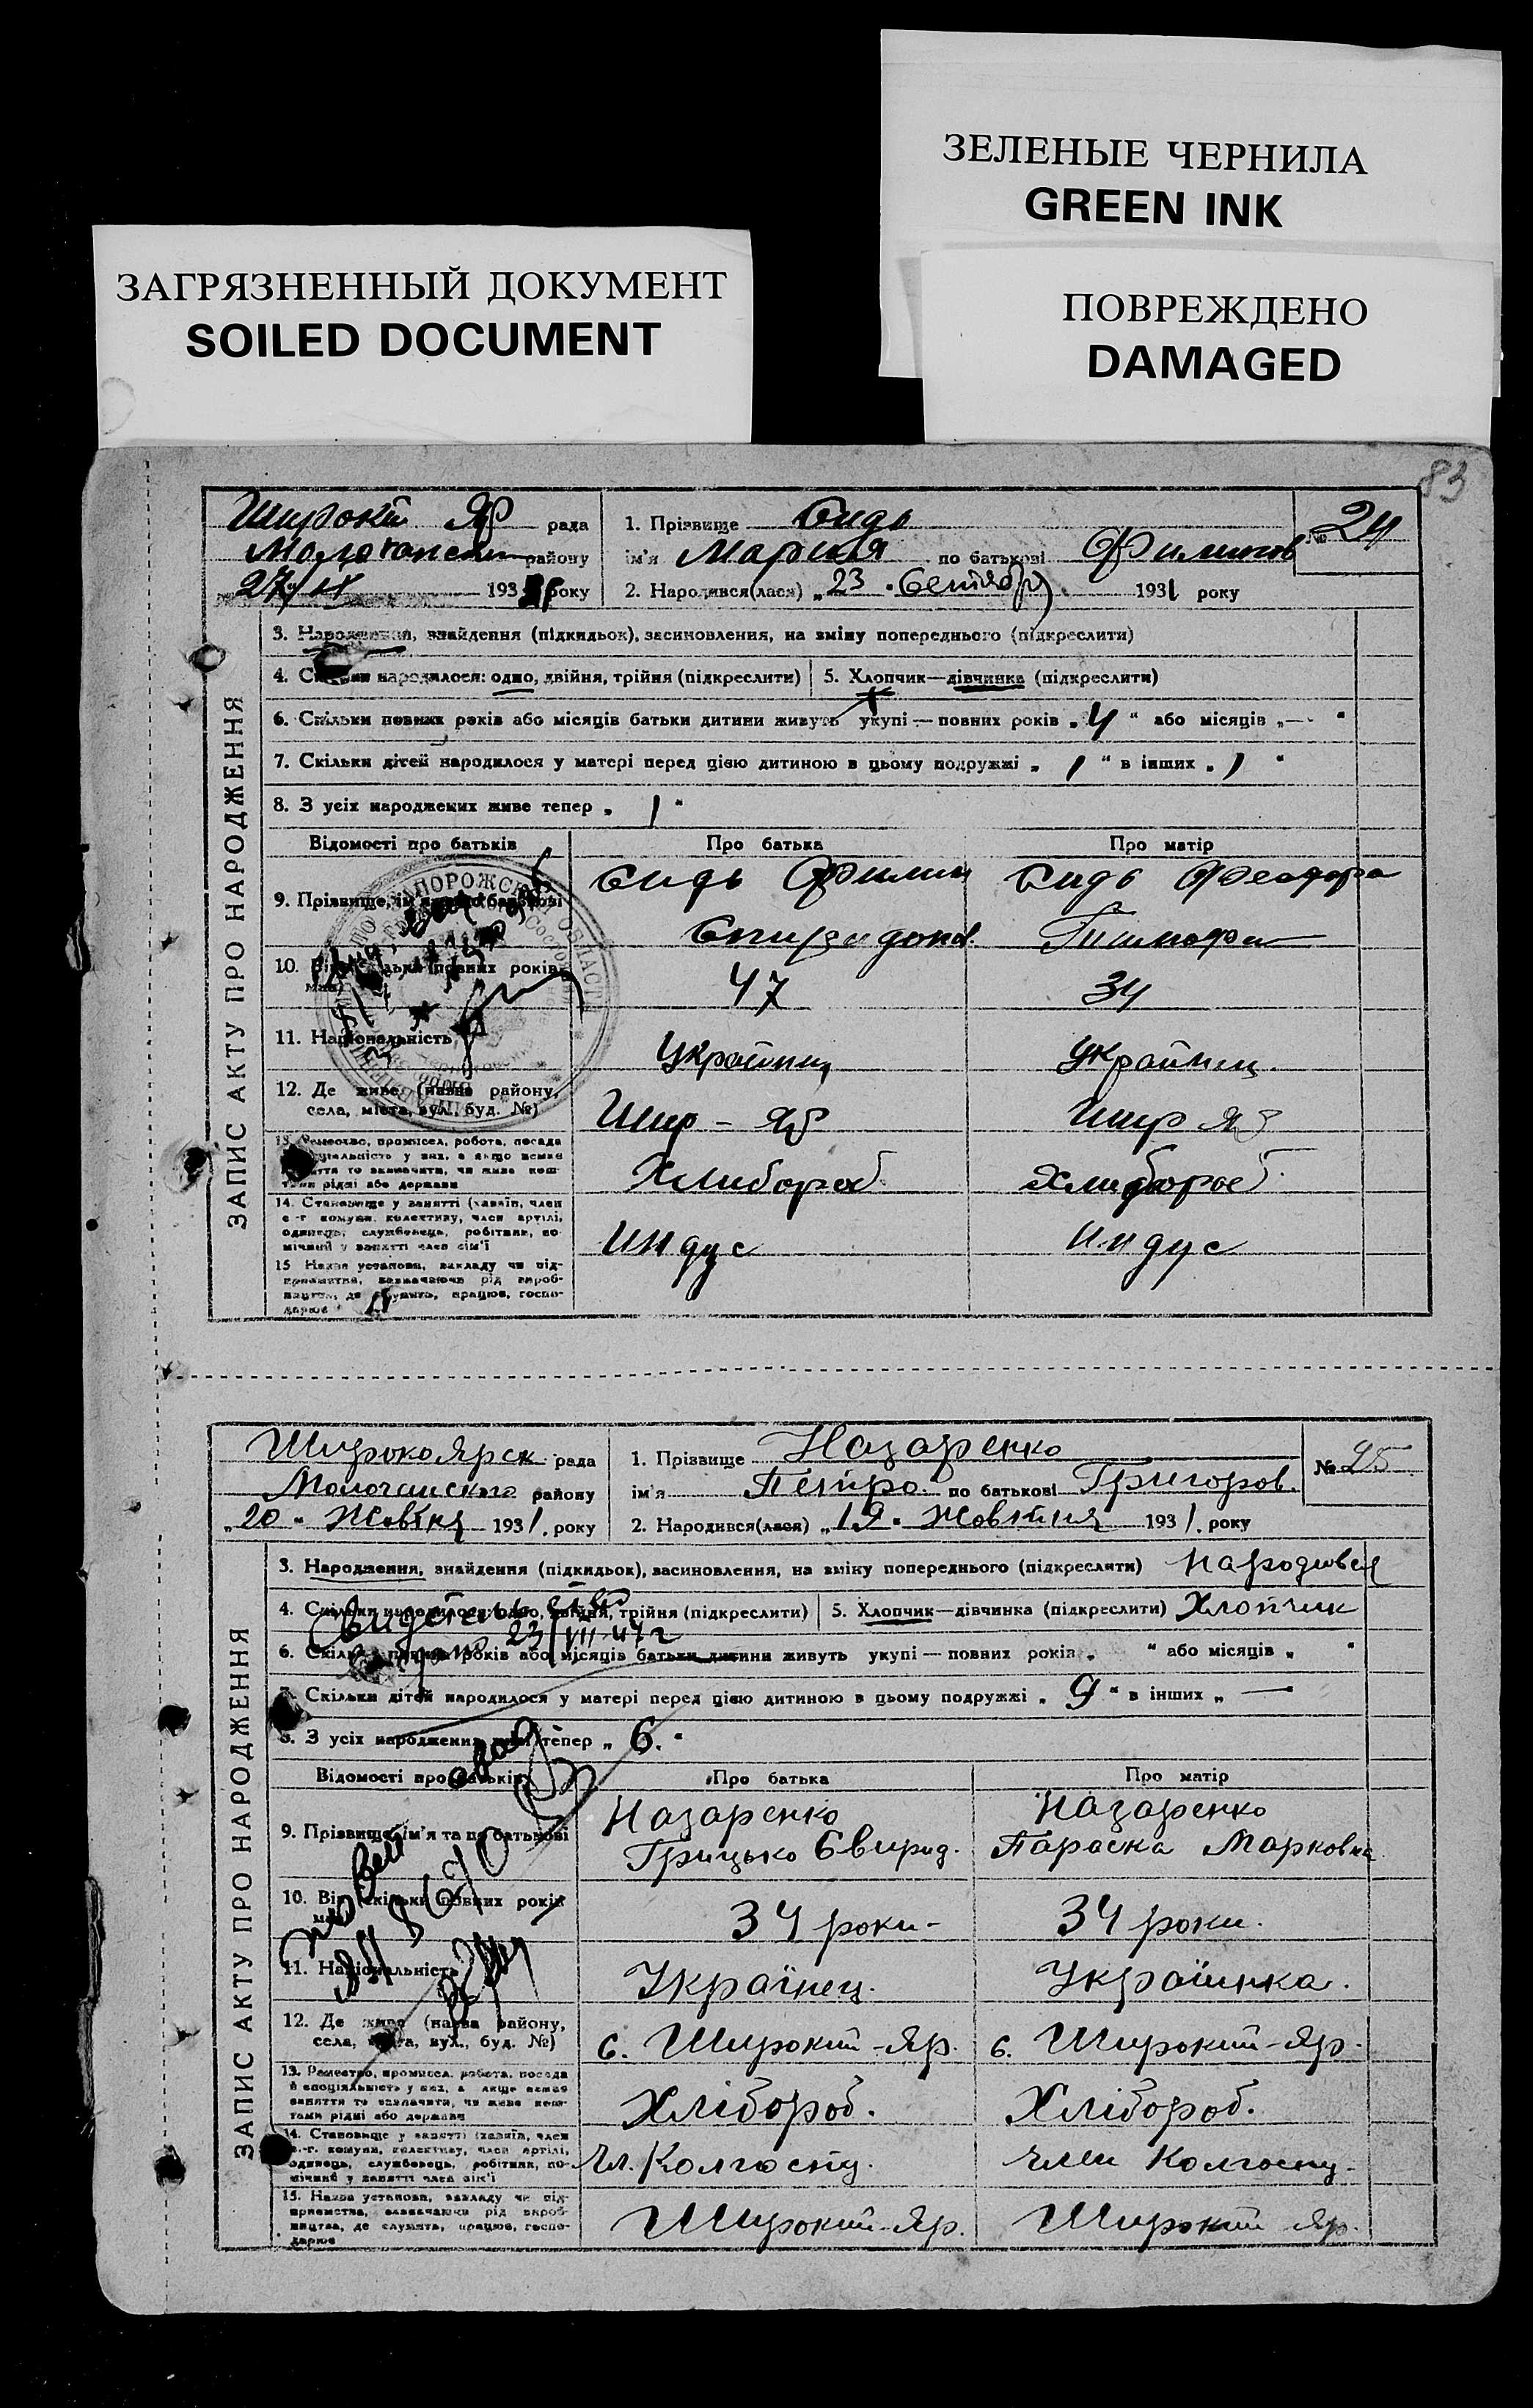 ЗЕЛЕНЫЕ ЧЕРНИЛА
GREEN INK
ЗАГРЯЗНЕННЫЙ ДОКУМЕНТ
SOILED DOCUMENT
ПОВРЕЖДЕНО
DAMAGED
83
ЗАПИС АКТУ ПРО НАРОДЖЕННЯ
Широкий Яр рада
району
27/IX 1931 року
1. Прізвище Сидь
№ 24
ім'я Мария по батькові Филипов
2. Народився(лася) „23 Сентябр 1931 року
3. Народження, знайдення (підкидьок), засиновлення, на зміну попереднього (підкреслити)
4. Скільки народилося: одно, двійня, трійня (підкреслити)
5. Хлопчик—дівчинка (підкреслити)
6. Скільки повних років або місяців батьки дитини живуть укупі — повних років „4" або місяців „—"
7. Скільки дітей народилося у матері перед цією дитиною в цьому подружжі „1" в інших „1"
8. З усіх народжених живе тепер „1"
Відомості про батьків Про батька Про матір
9. Прізвище, ім'я та по батькові
Сидь Филип Сидь Феодора
10. Вік, скільки повних років має
47 34
11. Національність
Украинец Украинец
12. Де живе (назва району, села, міста, вул., буд. №)
Шир - Яр Шир Яр
13. Ремество, промисел, робота, посада
Хлибороб Хлибороб
14. Становище у занятті (хазяїн, член с.-г. комуни, колективу, член артілі, одинець, службовець, робітник, помічний у занятті член сім'ї
Индус Индус
15 Назва установи, закладу чи підприємства, зазначаючи рід виробництва, де служить, працює, господарює
ЗАПИС АКТУ ПРО НАРОДЖЕННЯ
Широкоярск рада
Молочанского району
„20" Жовтня 1931. року
1. Прізвище Назаренко
№ 25
ім'я Петро по батькові Григоров.
2. Народився(лася) „19" Жовтня 1931. року
3. Народження, знайдення (підкидьок), засиновлення, на зміну попереднього (підкреслити) Народився
4. Скільки народилося: одно, двійня, трійня (підкреслити)
5. Хлопчик—дівчинка (підкреслити) Хлопчик
23/VII-47 г
6. Скільки повних років або місяців батьки дитини живуть укупі — повних років „ " або місяців „ "
7. Скільки дітей народилося у матері перед цією дитиною в цьому подружжі „9" в інших „—
8. З усіх народжених живе тепер „6."
Відомості про батьків Про батька Про матір
9. Прізвище, ім'я та по батькові
Назаренко Назаренко
Грицько Свирид. Параска Марковна
10. Вік, скільки повних років має
34 роки - 34 роки.
11. Національність
Українец. Українка.
12. Де живе (назва району, села, міста, вул., буд. №)
с. Широкий-Яр. с. Широкий-Яр.
13. Ремество, промисел, робота, посада й спеціяльність у них, а якщо немає заняття то зазначити, чи живе коштами рідні або держави
Хлібороб. Хлібороб.
14. Становище у занятті (хазяїн, член с.-г. комуни, колективу, член артілі, одинець, службовець, робітник, помічний у занятті член сім'ї
Чл. Колгоспу. Член Колгоспу.
15. Назва установи, закладу чи підприємства, зазначаючи рід виробництва, де служить, працює, господарює
Широкий-Яр. Широкий Яр.